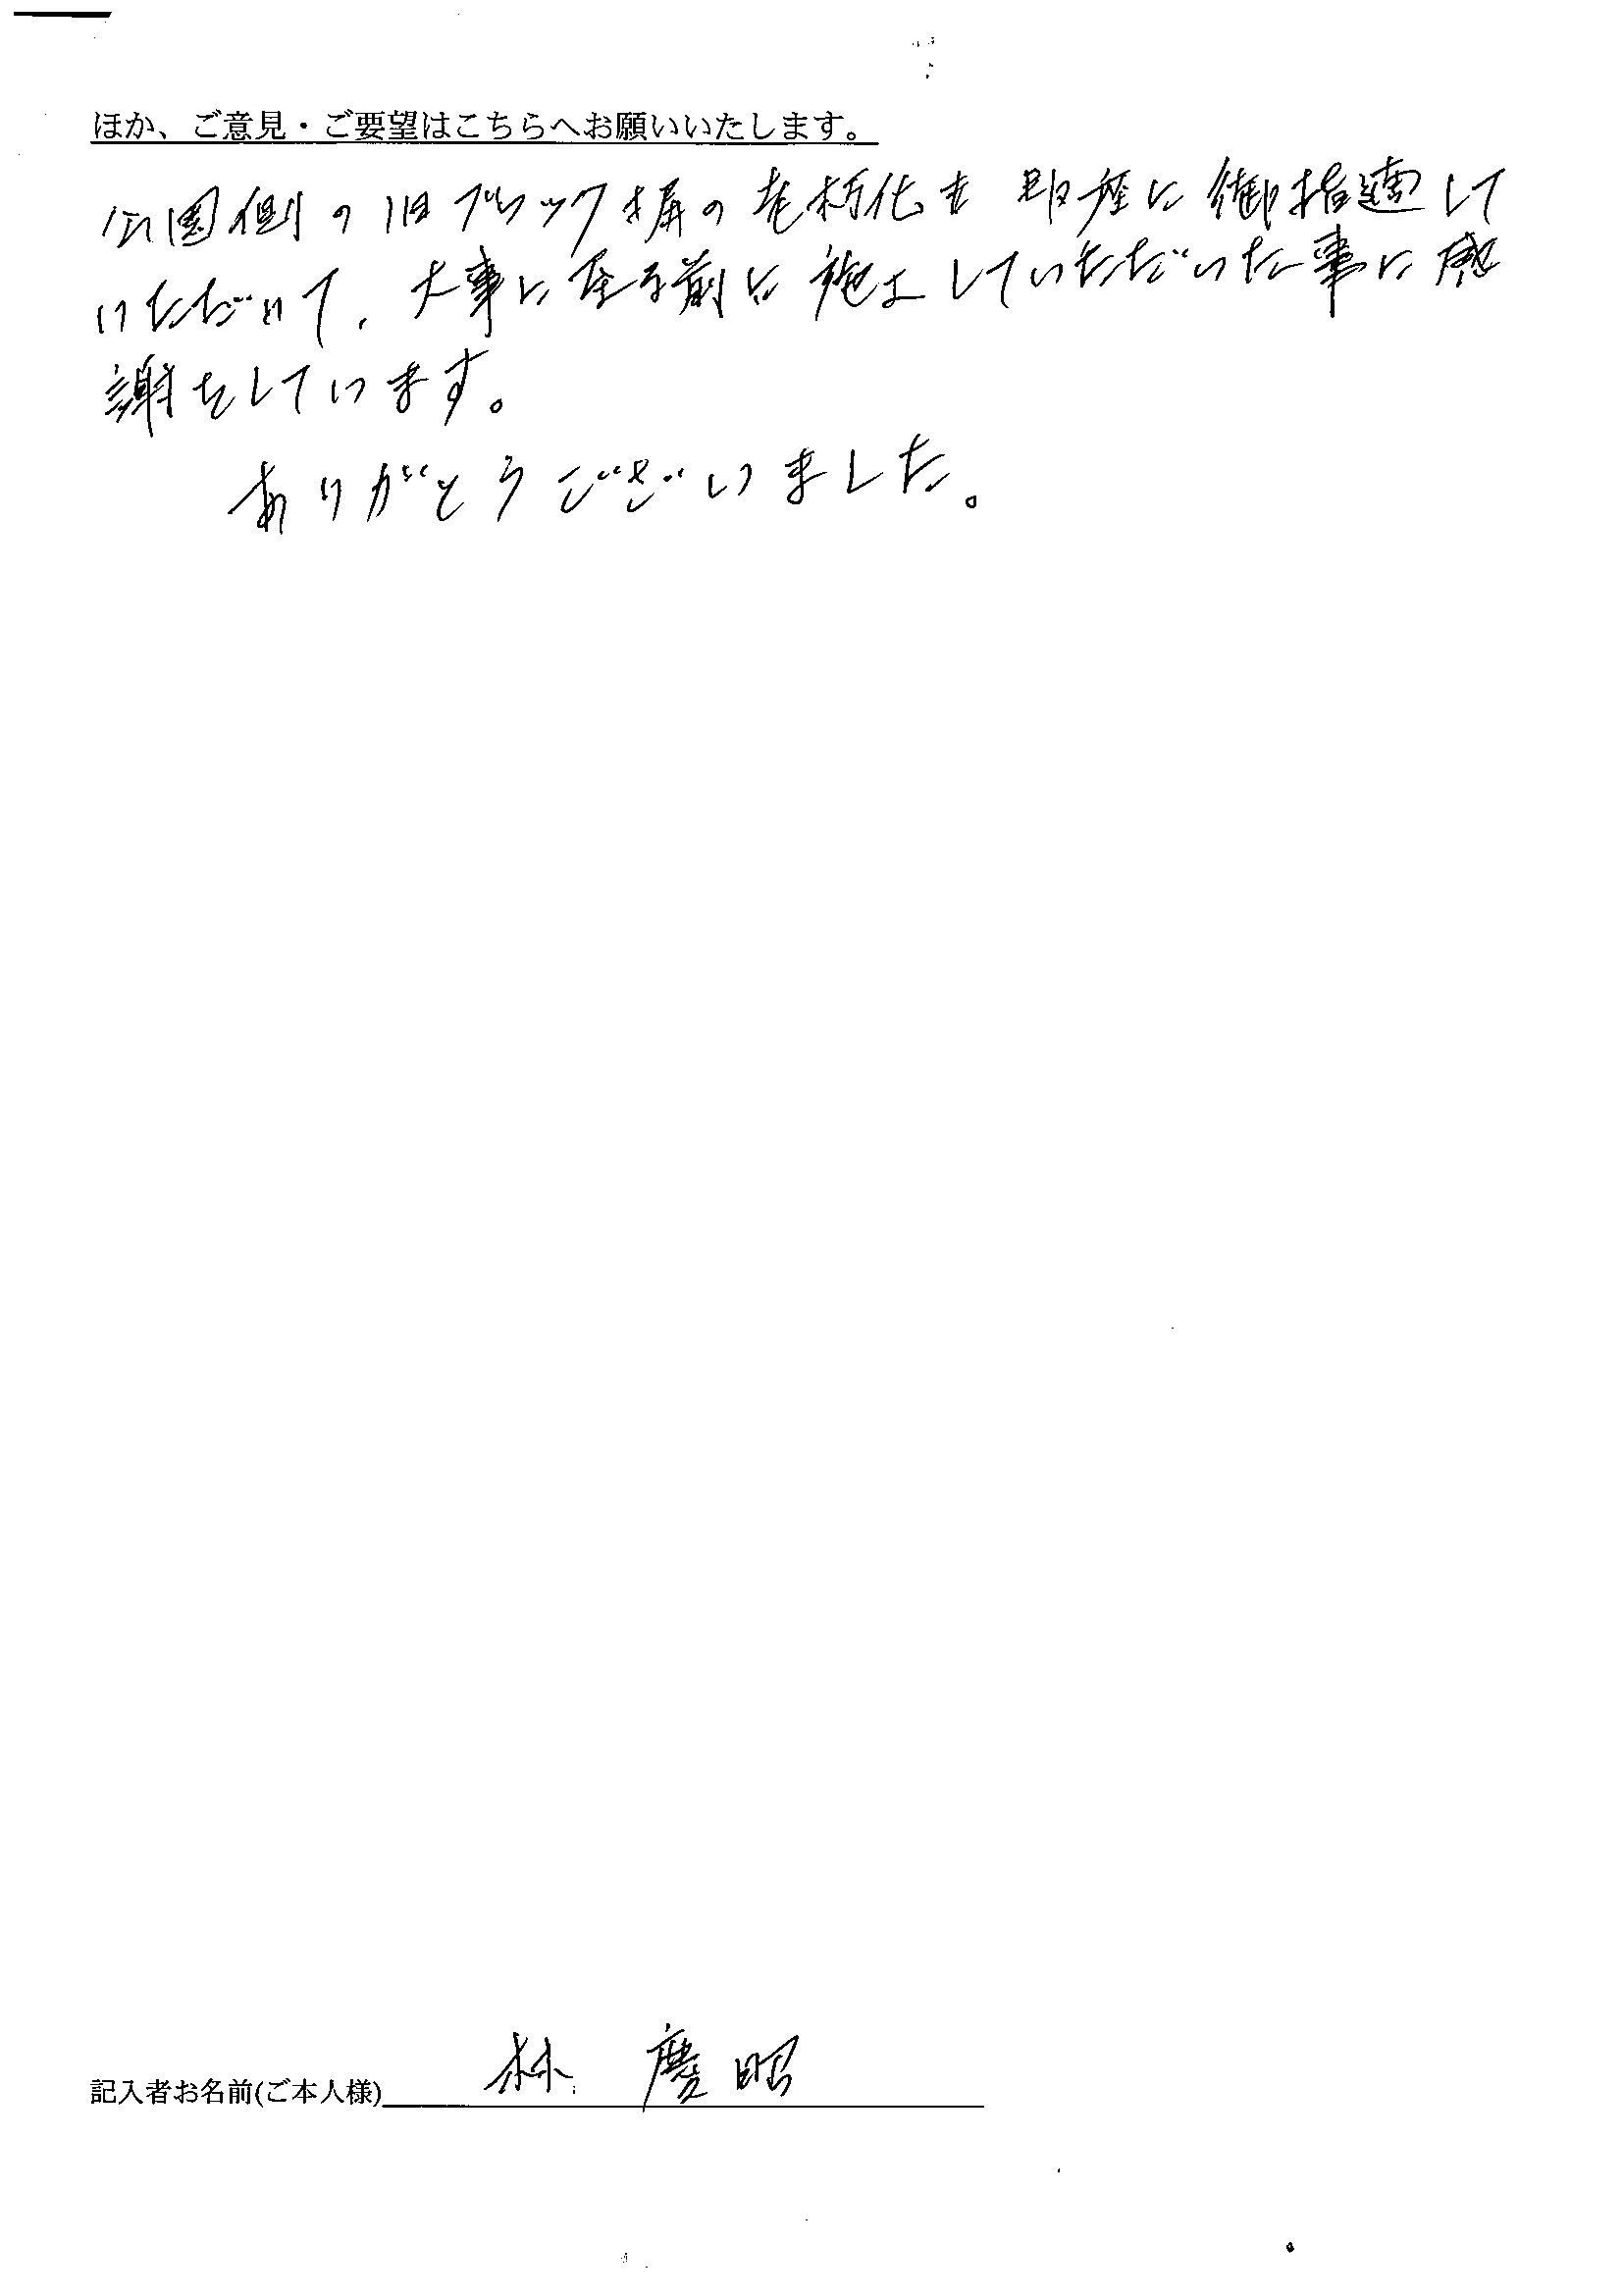 ほか、ご意見・ご要望はこちらへお願いいたします。
公園側の旧ブロック塀の老朽化を即座に御指摘して
いただいて、大事に至る前に施工していただいた事に感
謝をしています。
ありがとうございました。
記入者お名前(ご本人様) 林 慶昭